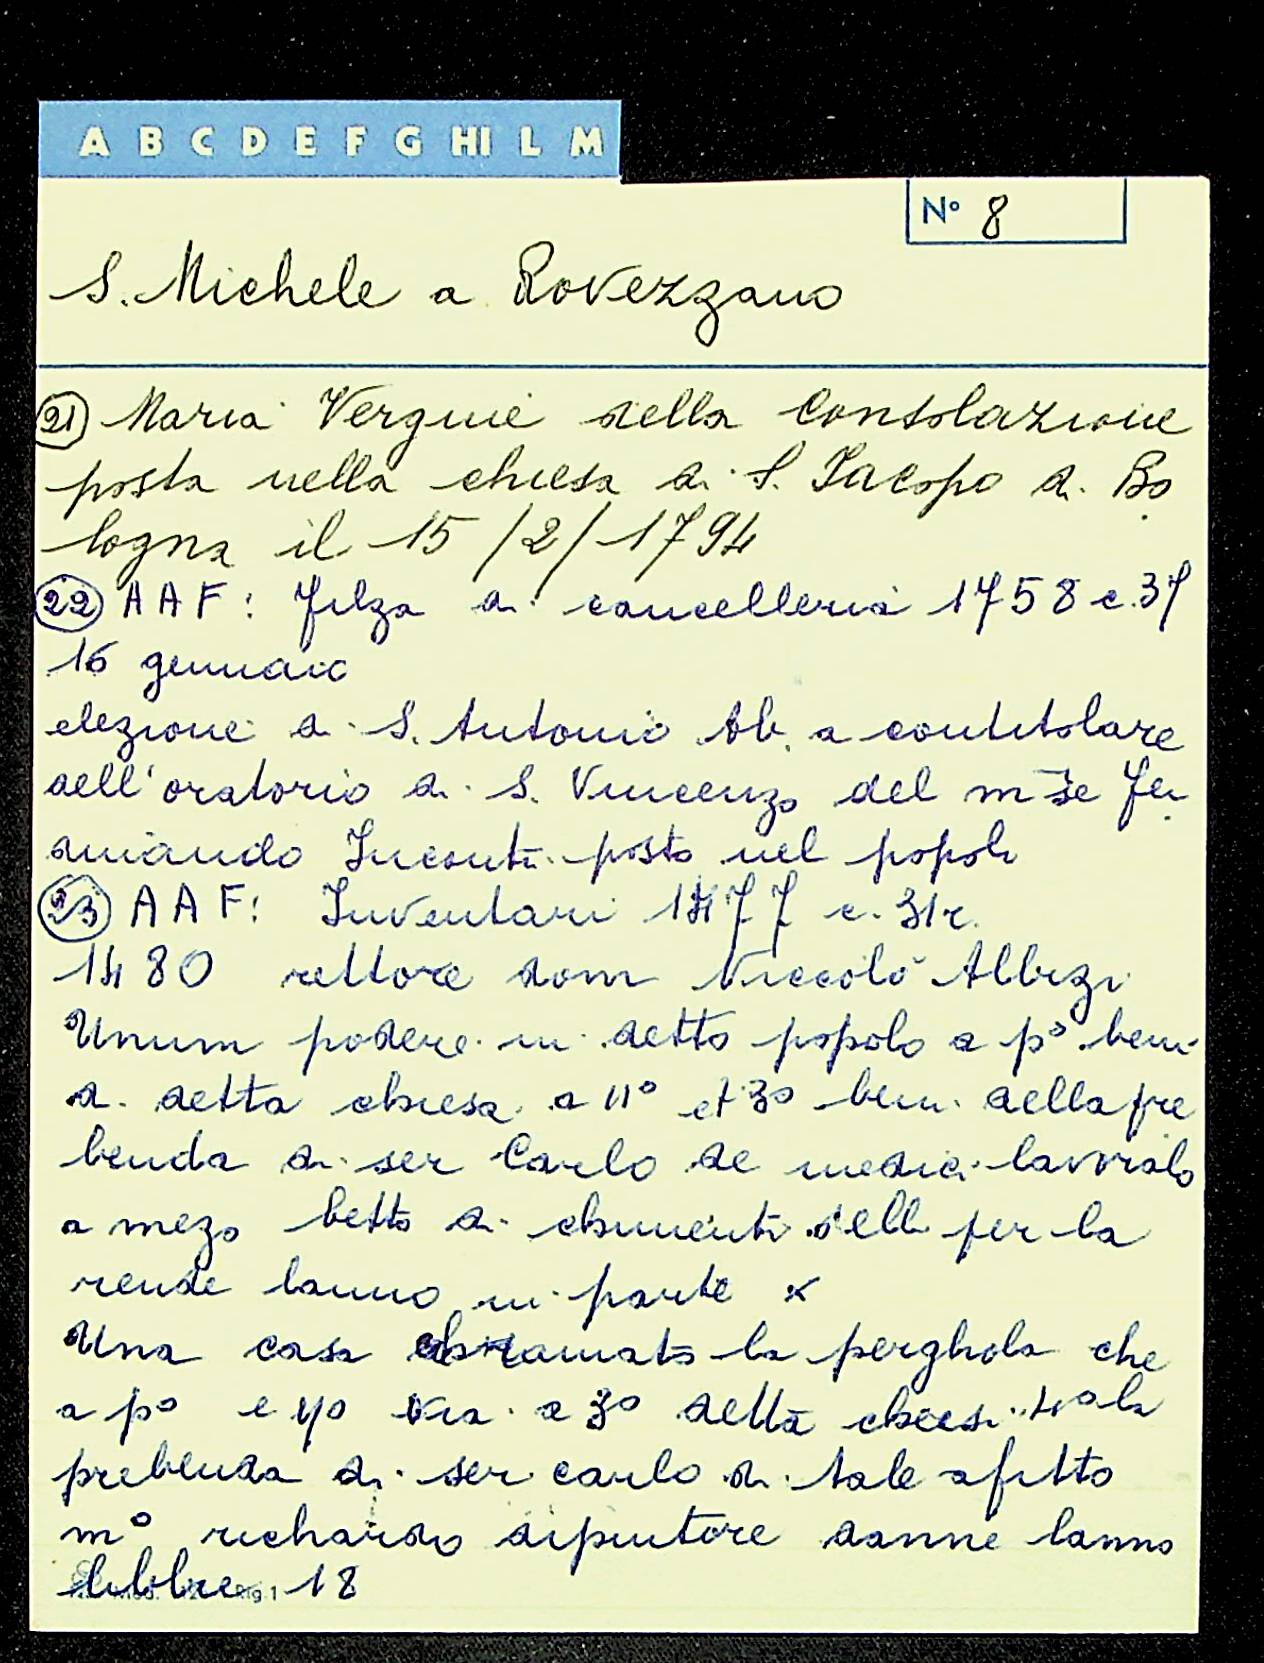 A B C D E F G HI L M
N° 8
S. Michele a Rovezzano
21) Maria Vergine della Consolazione
posta nella chiesa di S. Jacopo di Bo
logna il 15/2/1794
22) AAF: Filza di cancelleria 1758 c. 37
16 gennaio
elezione di S. Antonio Ab. a contitolare
dell'oratorio di S. Vincenzo del m̄se Fer
dinando Incontri posto nel popolo
23) AAF: Inventari 1477 c. 31r.
1480 rettore dom Niccolò Albizi
Unum podere in detto popolo a p° beni
di detta chiesa a 11° et 3° beni della pre
benda di ser Carlo de medici lavoralo
a mezo betto di chimenti per la
rende lanno in parte x
Una casa chiamata la perghola che
a p° e 11° via a 3° detta chiesa 4° la
prebenda di ser carlo di tale afitto
m° richardo dipintore danne lanno
libbre 18